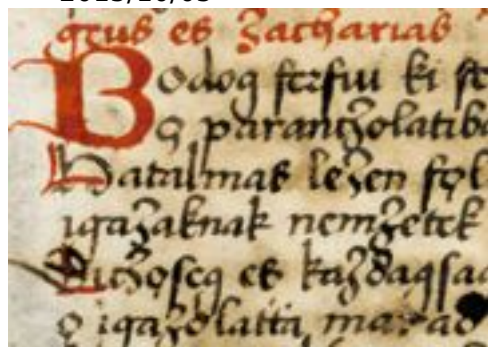 geus es Zacharias
Bodog ferfiu ki fe
ǫ parančolatiba
Hatalmas leʒen fǫl
igaʒaknak nemʒetek
Dičǫseg es kaʒdagsa
ǫ igaʒolatta marad